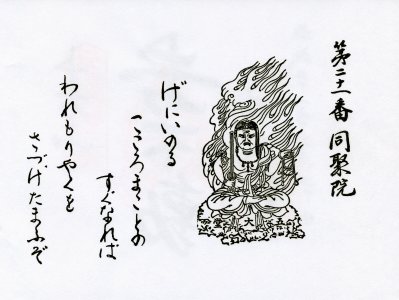 第二十一番 同聚院
げにいのる
こころまことの
すぐなれば
われもりやくを
さづけたまふぞ
五大堂